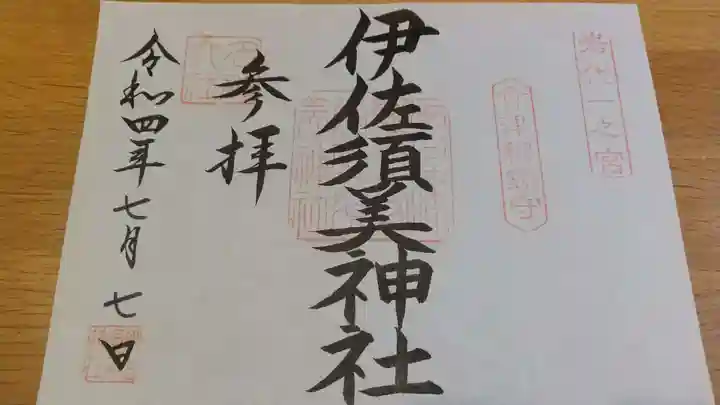 岩代一之宮
会津総鎮守
伊佐須美神社
参拝
令和四年七月七日